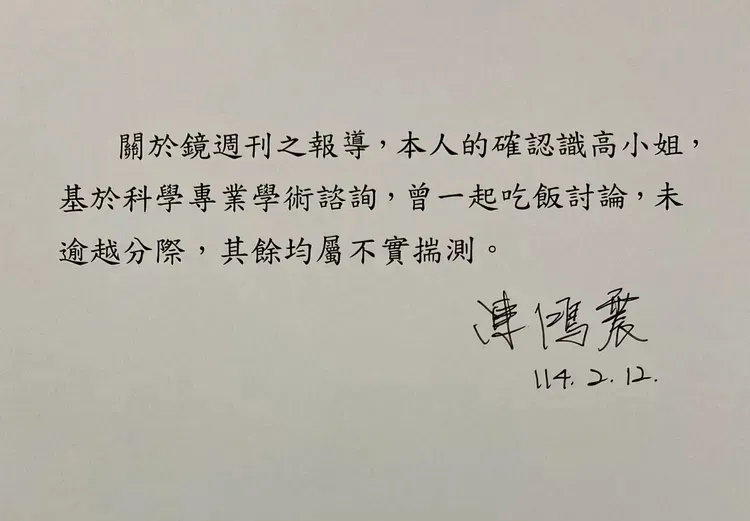 關於鏡週刊之報導，本人的確認識高小姐，
基於科學專業學術諮詢，曾一起吃飯討論，未
逾越分際，其餘均屬不實揣測。
陳鴻震
114.2.12.